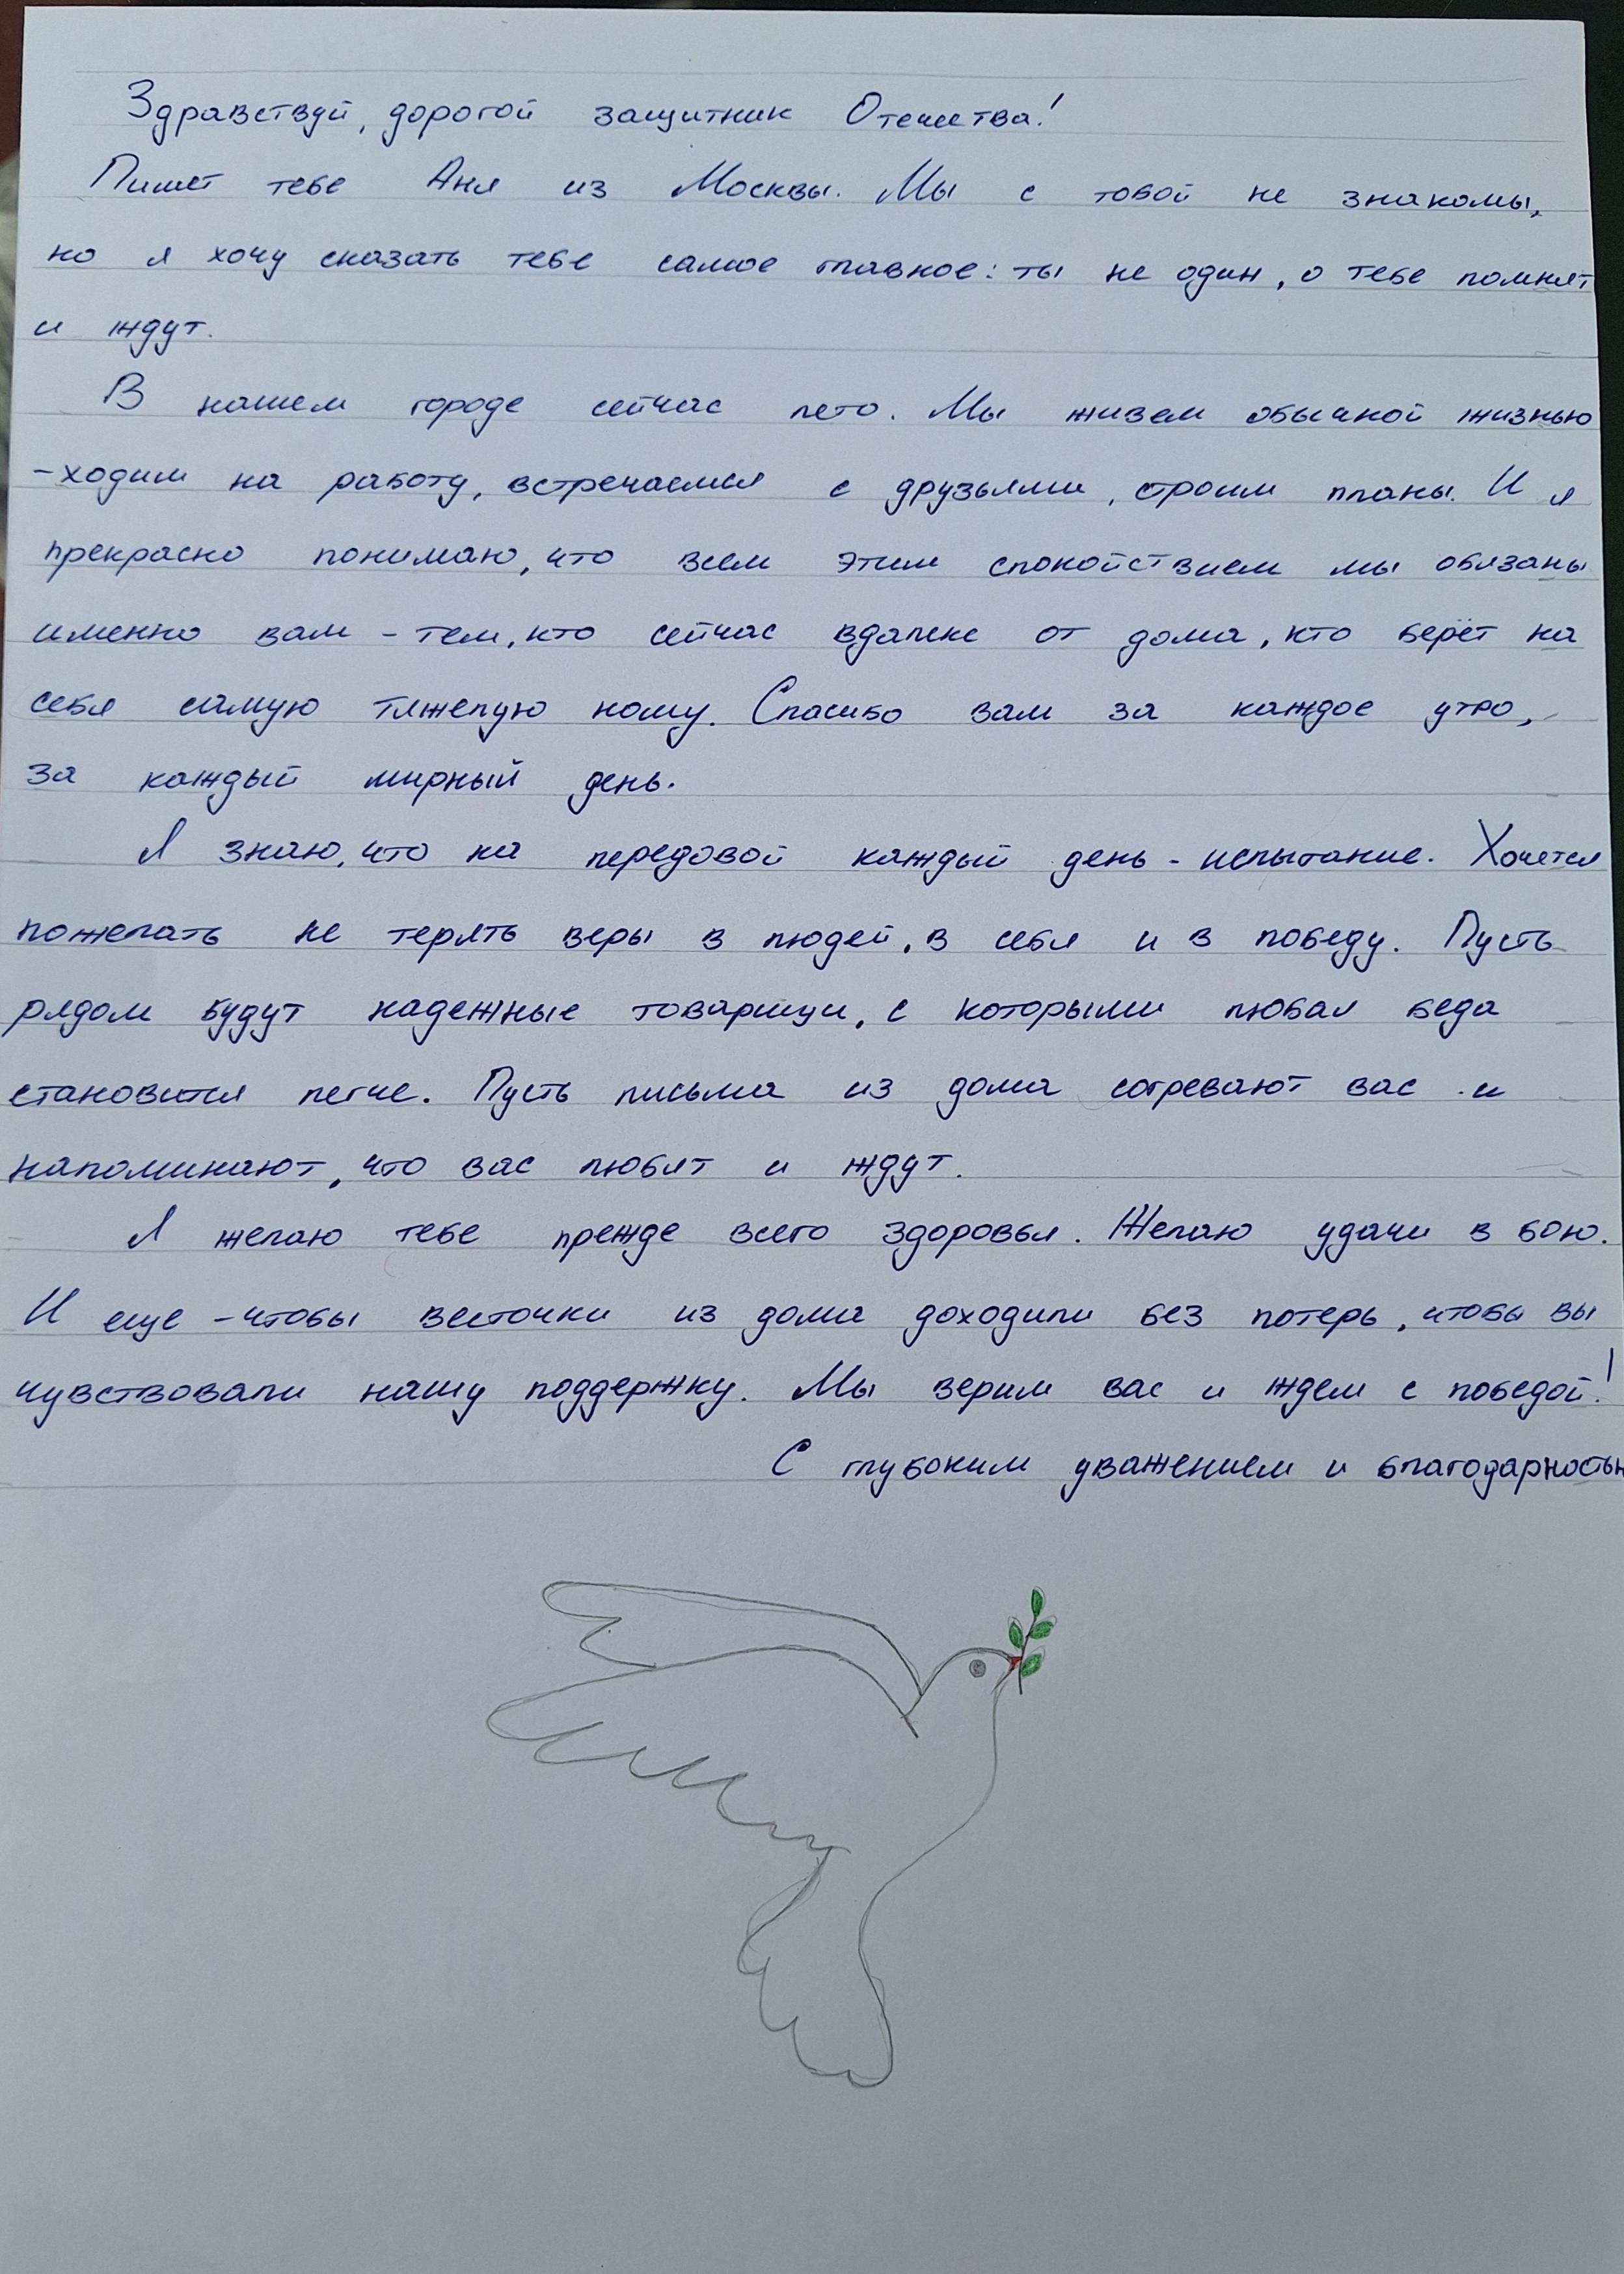 Здравствуй, дорогой защитник Отечества!
Пишет тебе Аня из Москвы. Мы с тобой не знакомы,
но я хочу сказать тебе самое главное: ты не один, о тебе помнят
и ждут.
В нашем городе сейчас лето. Мы живем обычной жизнью
- ходим на работу, встречаемся с друзьями, строим планы. И я
прекрасно понимаю, что всем этим спокойствием мы обязаны
именно вам - тем, кто сейчас вдалеке от дома, кто берёт на
себя самую тяжелую ношу. Спасибо вам за каждое утро,
за каждый мирный день.
Я знаю, что на передовой каждый день - испытание. Хочется
пожелать не терять веры в людей, в себя и в победу. Пусть
рядом будут надежные товарищи, с которыми любая беда
становится легче. Пусть письма из дома согревают вас и
напоминают, что вас любят и ждут.
Я желаю тебе прежде всего здоровья. Желаю удачи в бою.
И еще - чтобы весточки из дома доходили без потерь, чтобы вы
чувствовали нашу поддержку. Мы верим вас и ждем с победой!
С глубоким уважением и благодарностью